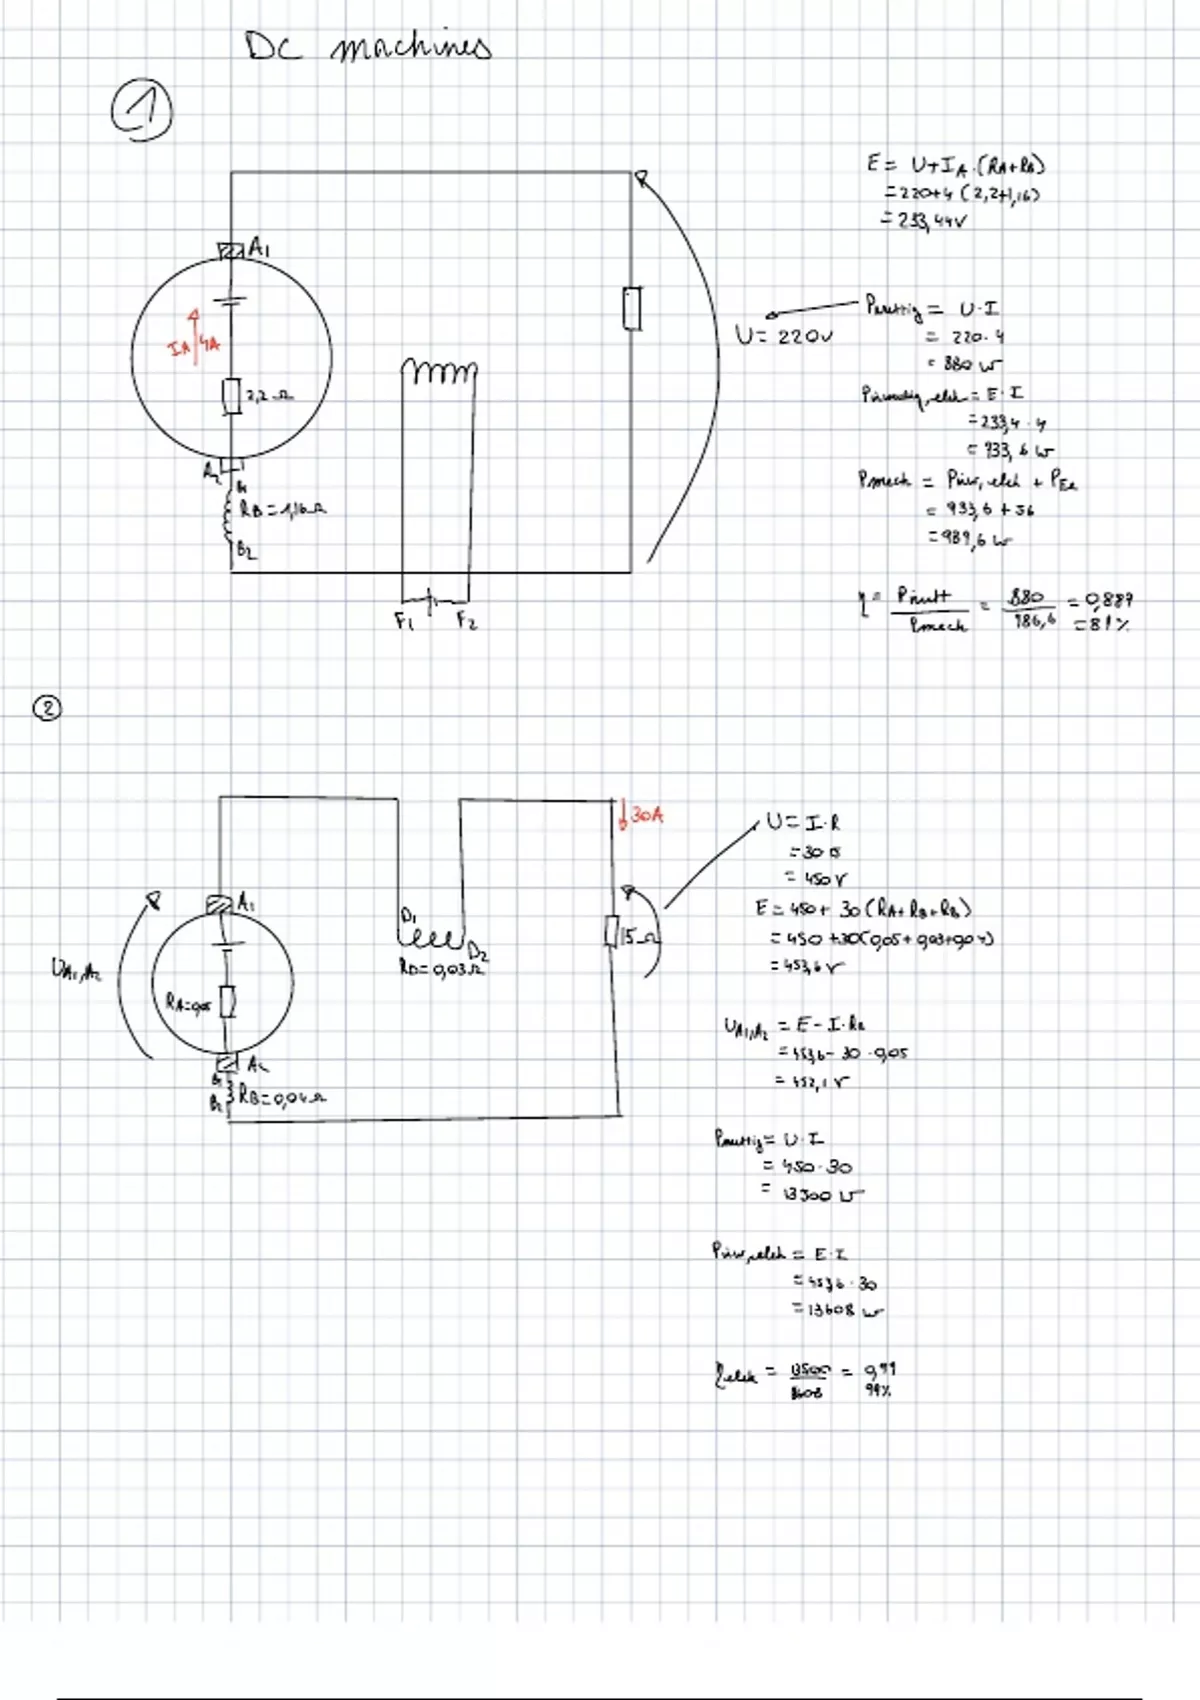 DC machines
1
A1
IA 4A
2,2 Ω
A2
B1
RB = 1,16Ω
B2
F1 F2
U = 220V
E = U + IA . (RA+RB)
= 220+4 (2,2+1,16)
= 233,44V
Pnuttig = U . I
= 220 . 4
= 880 W
Pinwendig, elek = E . I
= 233,4 . 4
= 933,6 W
Pmech = Pinw, elek +
= 933,6 + 56
= 989,6 W
η = Pnutt / Pmech = 880 / 986,6 = 0,889
= 81%
2
30A
A1
UA1,A2
RA=0,05
D1
D2
RD = 0,03Ω
15Ω
B1
B2
RB=0,04Ω
U = I . R
= 450 V
E = 450 + 30 (RA+ RB+ RB)
= 450 + 30(0,05 + 0,03+0,04)
= 453,6 V
UA1,A2 = E - I .
= 453,6 - 30 . 0,05
= 452,1 V
Pnuttig = U . I
= 450 . 30
= 13500 W
Pinw,elek = E . I
= 453,6 . 30
= 13608 W
ηelek = 13500 / = 0,99
99%